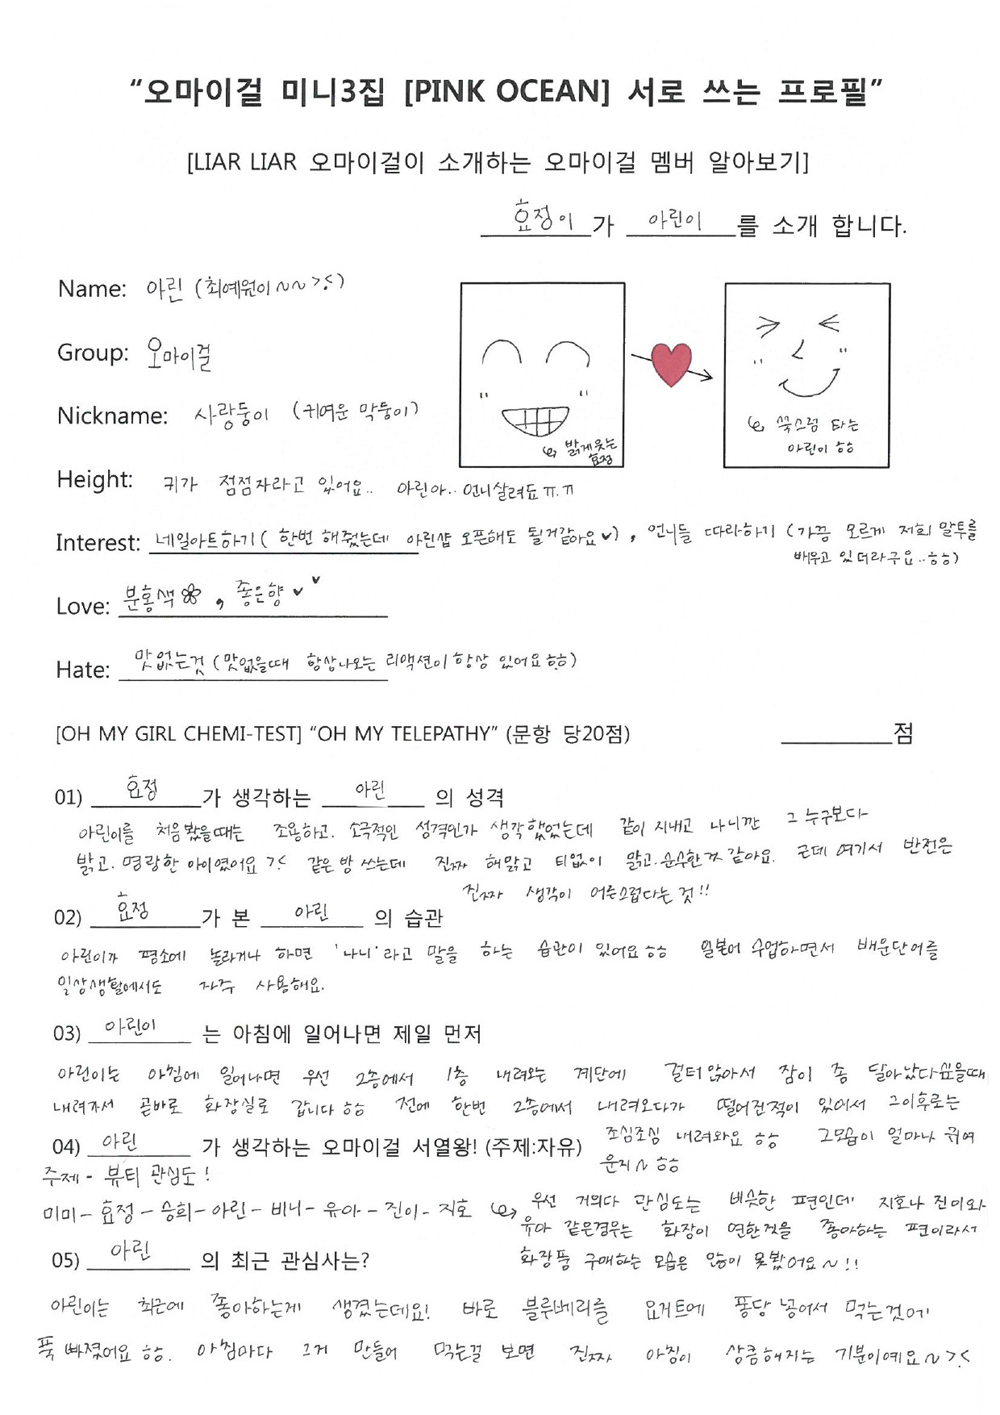 “오마이걸 미니3집 [PINK OCEAN] 서로 쓰는 프로필”
[LIAR LIAR 오마이걸이 소개하는 오마이걸 멤버 알아보기]
효정이 가 아린이 를 소개 합니다.
Name: 아린 (최예원이~~>.<)
Group: 오마이걸
Nickname: 사랑둥이 (귀여운 막둥이)
밝게웃는
효정
쑥스럼 타는
아린이 ㅎㅎ
Height: 키가 점점자라고 있어요.. 아린아.. 언니살려듀ㅠ.ㅠ
Interest: 네일아트하기( 한번 해줬는데 아린샵 오픈해도 될거같아요♥), 언니들 따라하기 (가끔 모르게 저희 말투를
배우고 있더라구요..ㅎㅎ)
Love: 분홍색, 좋은향♥♥
Hate: 맛없는것 (맛없을때 항상나오는 리액션이 항상 있어요ㅎㅎ)
[OH MY GIRL CHEMI-TEST] “OH MY TELEPATHY” (문항 당20점) 점
01) 효정 가 생각하는 아린 의 성격
아린이를 처음봤을때는 조용하고. 소극적인 성격인가 생각했었는데 같이 지내고 나니깐 그 누구보다
밝고. 명랑한 아이였어요 >.< 같은 방 쓰는데 진짜 해맑고 티없이 맑고.순수한거 같아요. 근데 여기서 반전은
진짜 생각이 어른스럽다는 것!!
02) 효정 가 본 아린 의 습관
아린이가 평소에 놀라거나 하면 '나니'라고 말을 하는 습관이 있어요ㅎㅎ 일본어 수업하면서 배운단어를
일상생활에서도 자주 사용해요.
03) 아린이 는 아침에 일어나면 제일 먼저
아린이는 아침에 일어나면 우선 2층에서 1층 내려오는 계단에 걸터앉아서 잠이 좀 달아났다싶을때
내려가서 곧바로 화장실로 갑니다ㅎㅎ 전에 한번 2층에서 내려오다가 떨어진적이 있어서 그이후로는
조심조심 내려와요 ㅎㅎ 그모습이 얼마나 귀여
운지~ ㅎㅎ
04) 아린 가 생각하는 오마이걸 서열왕! (주제:자유)
주제 - 뷰티 관심도!
미미 - 효정 - 승희 - 아린 - 비니 - 유아 - 진이 - 지호
우선 거의다 관심도는 비슷한 편인데 지호나 진이와
유아 같은경우는 화장이 연한것을 좋아하는 편이라서
화장품 구매하는 모습은 많이 못봤어요~!!
05) 아린 의 최근 관심사는?
아린이는 최근에 좋아하는게 생겼는데요! 바로 블루베리를 요거트에 퐁당 넣어서 먹는것에
푹 빠졌어요 ㅎㅎ. 아침마다 그거 만들어 먹는걸 보면 진짜 아침이 상큼해지는 기분이에요~>.<